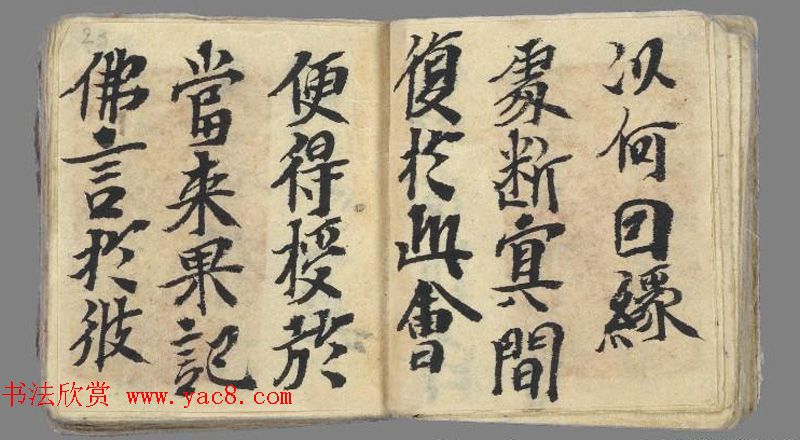 以何因緣
處斷冥間
復扵此會
便得授扵
當来果記
佛言扵彼
23
书法欣赏 www.yac8.com